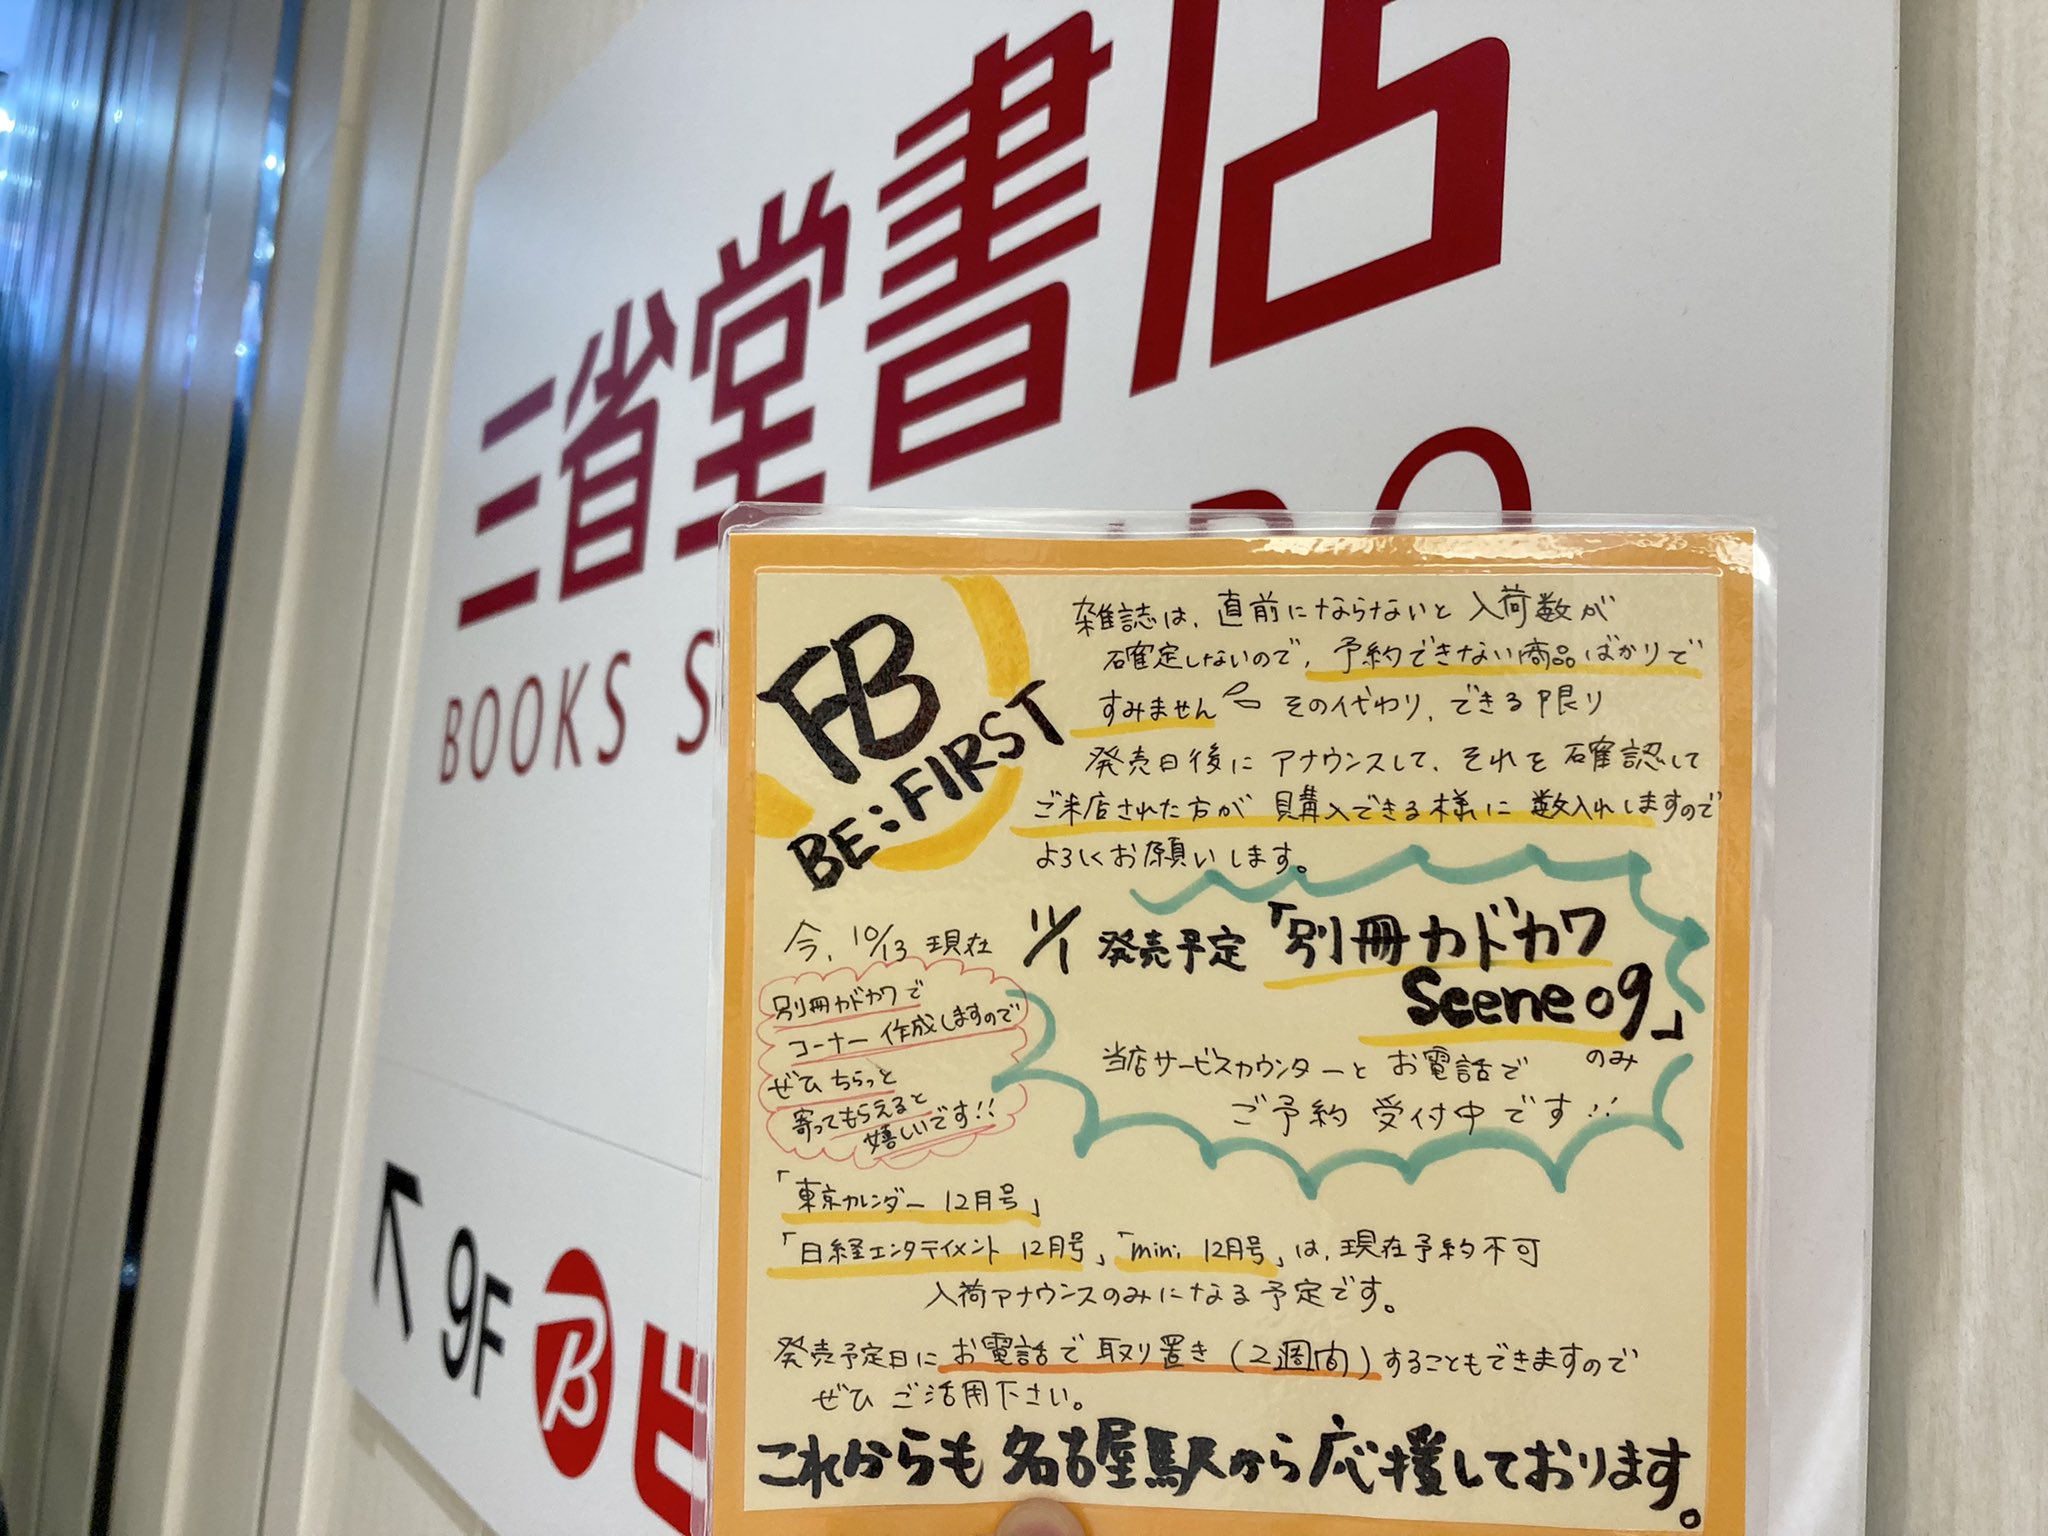 三省堂書店
BOOKS S
9F
B
ビ
FB
BE:FIRST
雑誌は、直前にならないと入荷数が
確定しないので、予約できない商品ばかりで
すみません その代わり、できる限り
発売日後に アナウンスして、それを 確認して
ご来店された方が 購入できる様に 数入れしますので
よろしくお願いします。
今、10/13 現在
11/1 発売予定「別冊カドカワ
Scene 09」
のみ
当店サービスカウンターと お電話で
ご予約 受付中です!!
別冊カドカワで
コーナー 作成しますので
ぜひ ちらっと
寄ってもらえると
嬉しいです!!
「東京カレンダー 12月号」
「日経エンタテイメント 12月号」「mini 12月号」は、現在予約不可
入荷アナウンスのみになる予定です。
発売予定日に お電話で 取り置き(2週間)することもできますので
ぜひ ご活用下さい。
これからも 名古屋駅から 応援しております。